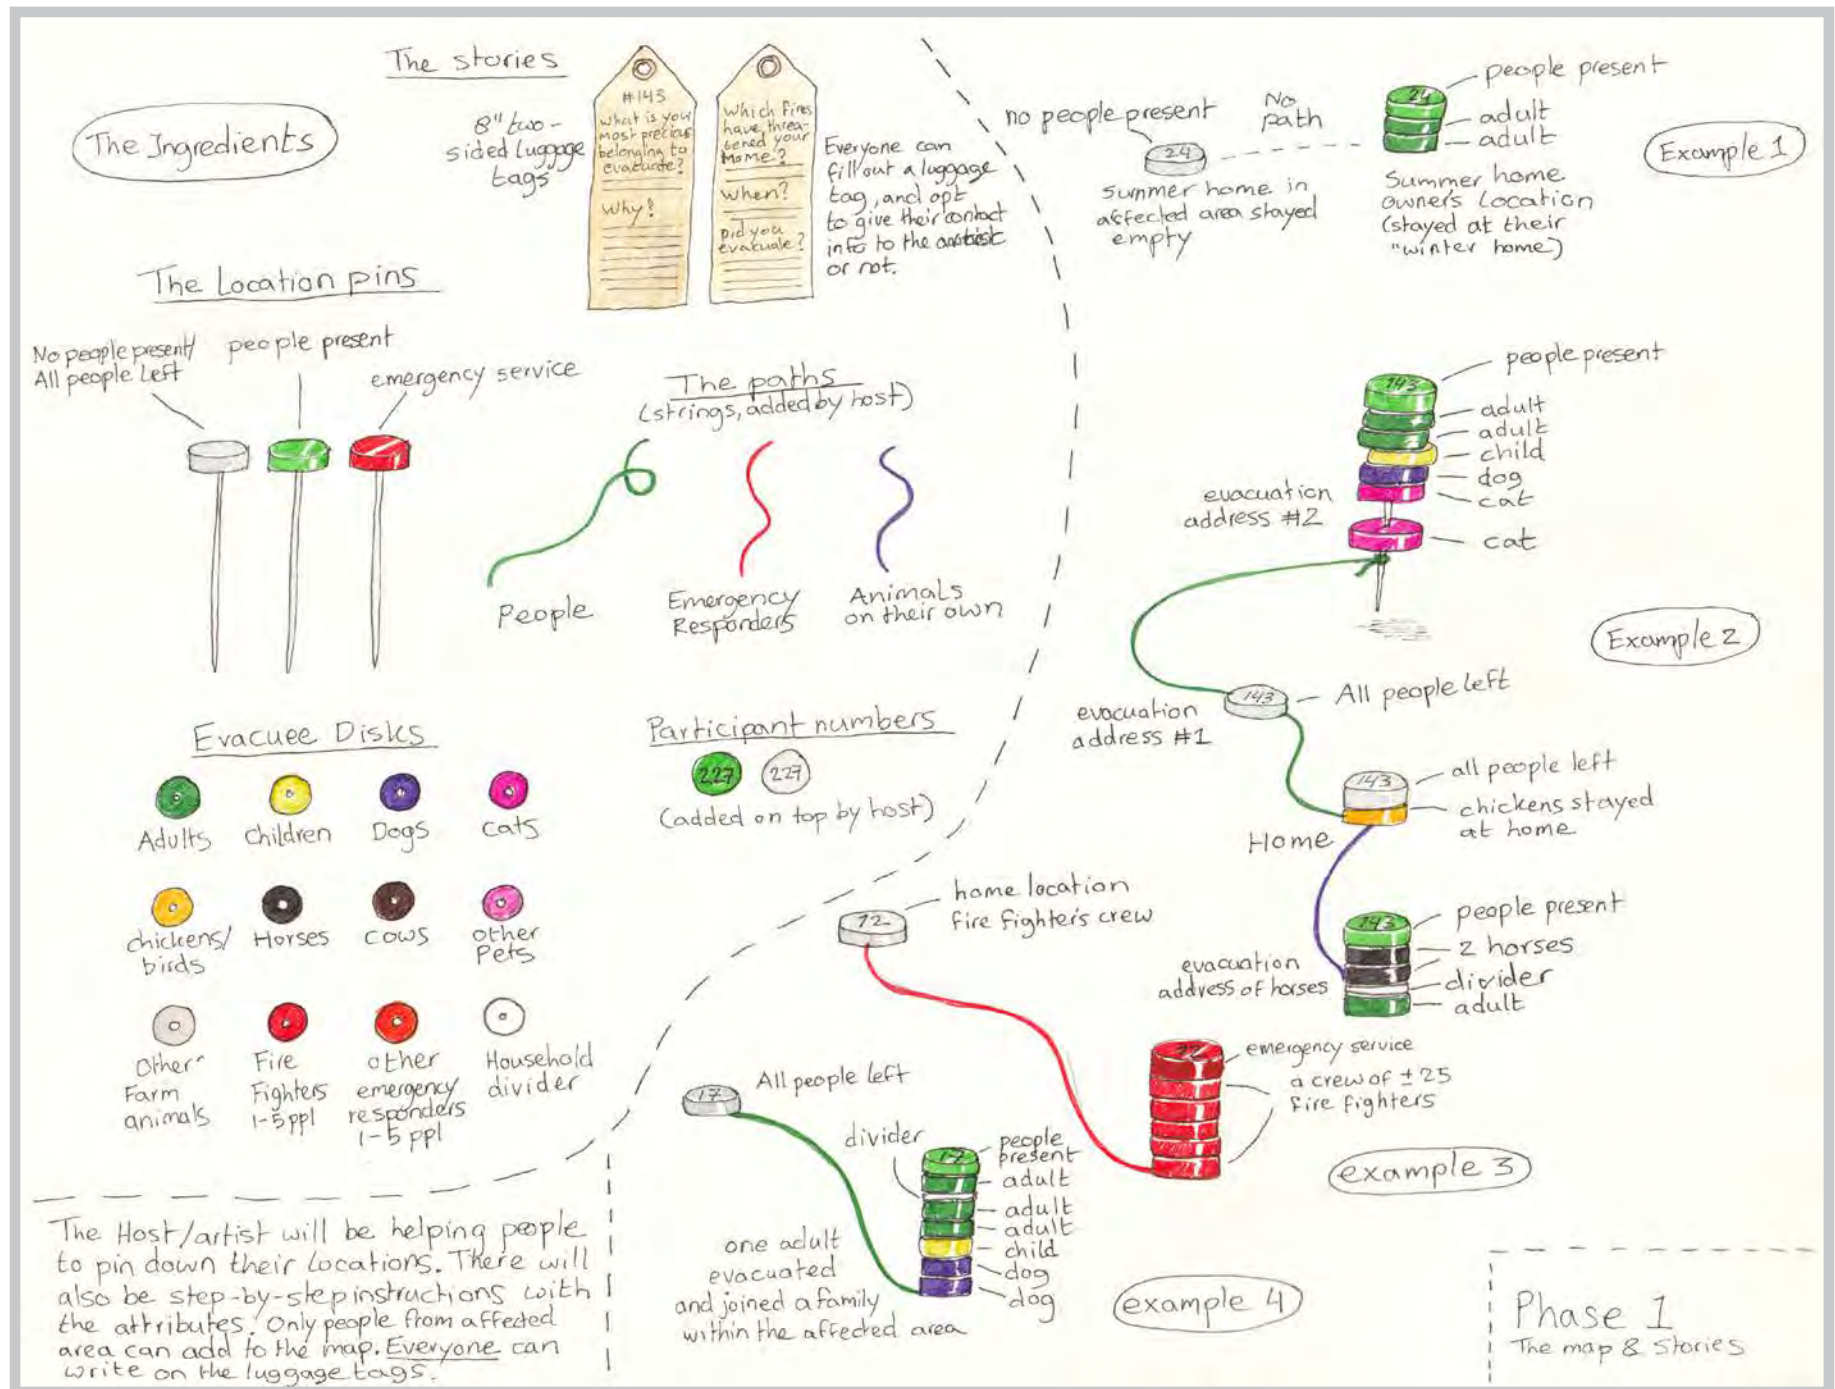 The Ingredients
The stories
8" two-
sided luggage
tags
#143
What is your
most precious
belonging to
evacuate?
Why?
Which fires
have threa-
tened your
Home?
When?
Did you
evacuate?
Everyone can
fill out a luggage
tag, and opt
to give their contact
info to the artist
or not.
The Location pins
No people present/
All people Left
people present
emergency service
The paths
(strings, added by host)
People
Emergency
Responders
Animals
on their own
Evacuee Disks
Adults
Children
Dogs
Cats
chickens/
birds
Horses
Cows
other
Pets
Other
Farm
animals
Fire
Fighters
1-5ppl
other
emergency
responders
1-5 ppl
Household
divider
Participant numbers
227
227
(added on top by host)
The Host/artist will be helping people
to pin down their locations. There will
also be step-by-step instructions with
the attributes. Only people from affected
area can add to the map. Everyone can
write on the luggage tags.
no people present
24
No
path
24
people present
adult
adult
summer home in
affected area stayed
empty
Summer home
owners Location
(stayed at their
"winter home)
Example 1
143
people present
adult
adult
child
dog
cat
cat
evacuation
address #2
Example 2
143
All people left
evacuation
address #1
143
all people left
chickens stayed
at home
Home
143
people present
2 horses
divider
adult
evacuation
address of horses
72
home location
fire fighters crew
72
emergency service
a crew of ±25
fire fighters
example 3
17
All people left
divider
17
people
present
adult
adult
adult
child
dog
dog
one adult
evacuated
and joined a family
within the affected area
example 4
Phase 1
The map & Stories